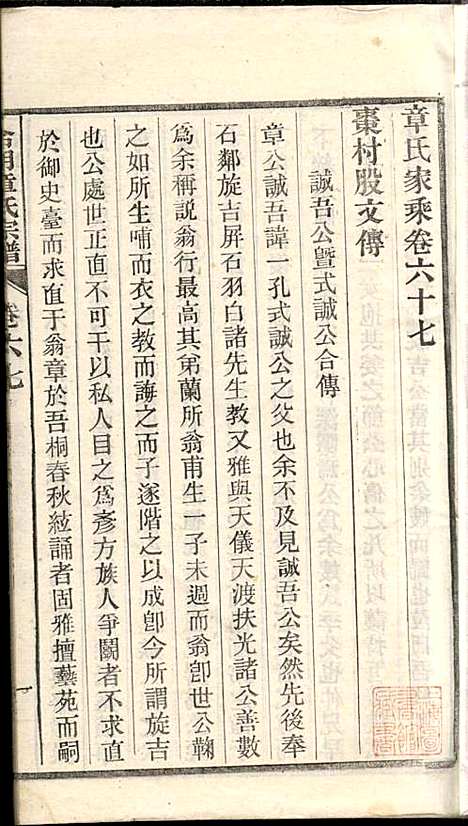 章氏家乘卷六十七
棗村股文傳
誠吾公暨式誠公合傳
章公誠吾諱一孔式誠公之父也余不及見誠吾公矣然先後奉
石鄰旋吉屏石羽白諸先生教又雅與天儀天渡扶光諸公善數
爲余稱說翁行最高其弟蘭所翁甫生一子未週而翁卽世公鞠
之如所生哺而衣之教而誨之而子遂階之以成卽今所謂旋吉
也公處世正直不可干以私人目之爲彥方族人爭鬬者不求直
於御史臺而求直于翁章於吾桐春秋絃誦者固雅擅藝苑而嗣
章氏宗譜
卷六七
一